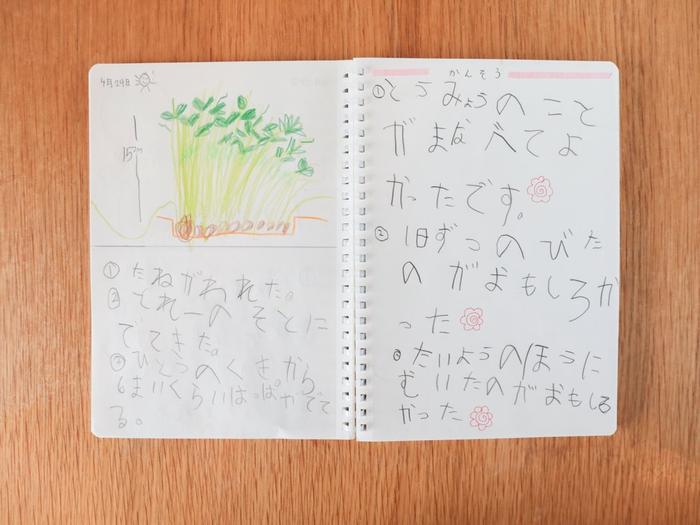 4月29日
15cm
①たねがわれた。
②とれーの そとに
でてきた。
③ひとつのくき。から
6まいくらいはっぱがでて
る。
かんそう
①とうみょうの こと
がまなべてよ
かったです。
② 1日ずつのびた
のがおもしろか
った
③たいようのほうに
むいたのがおもしろ
かった